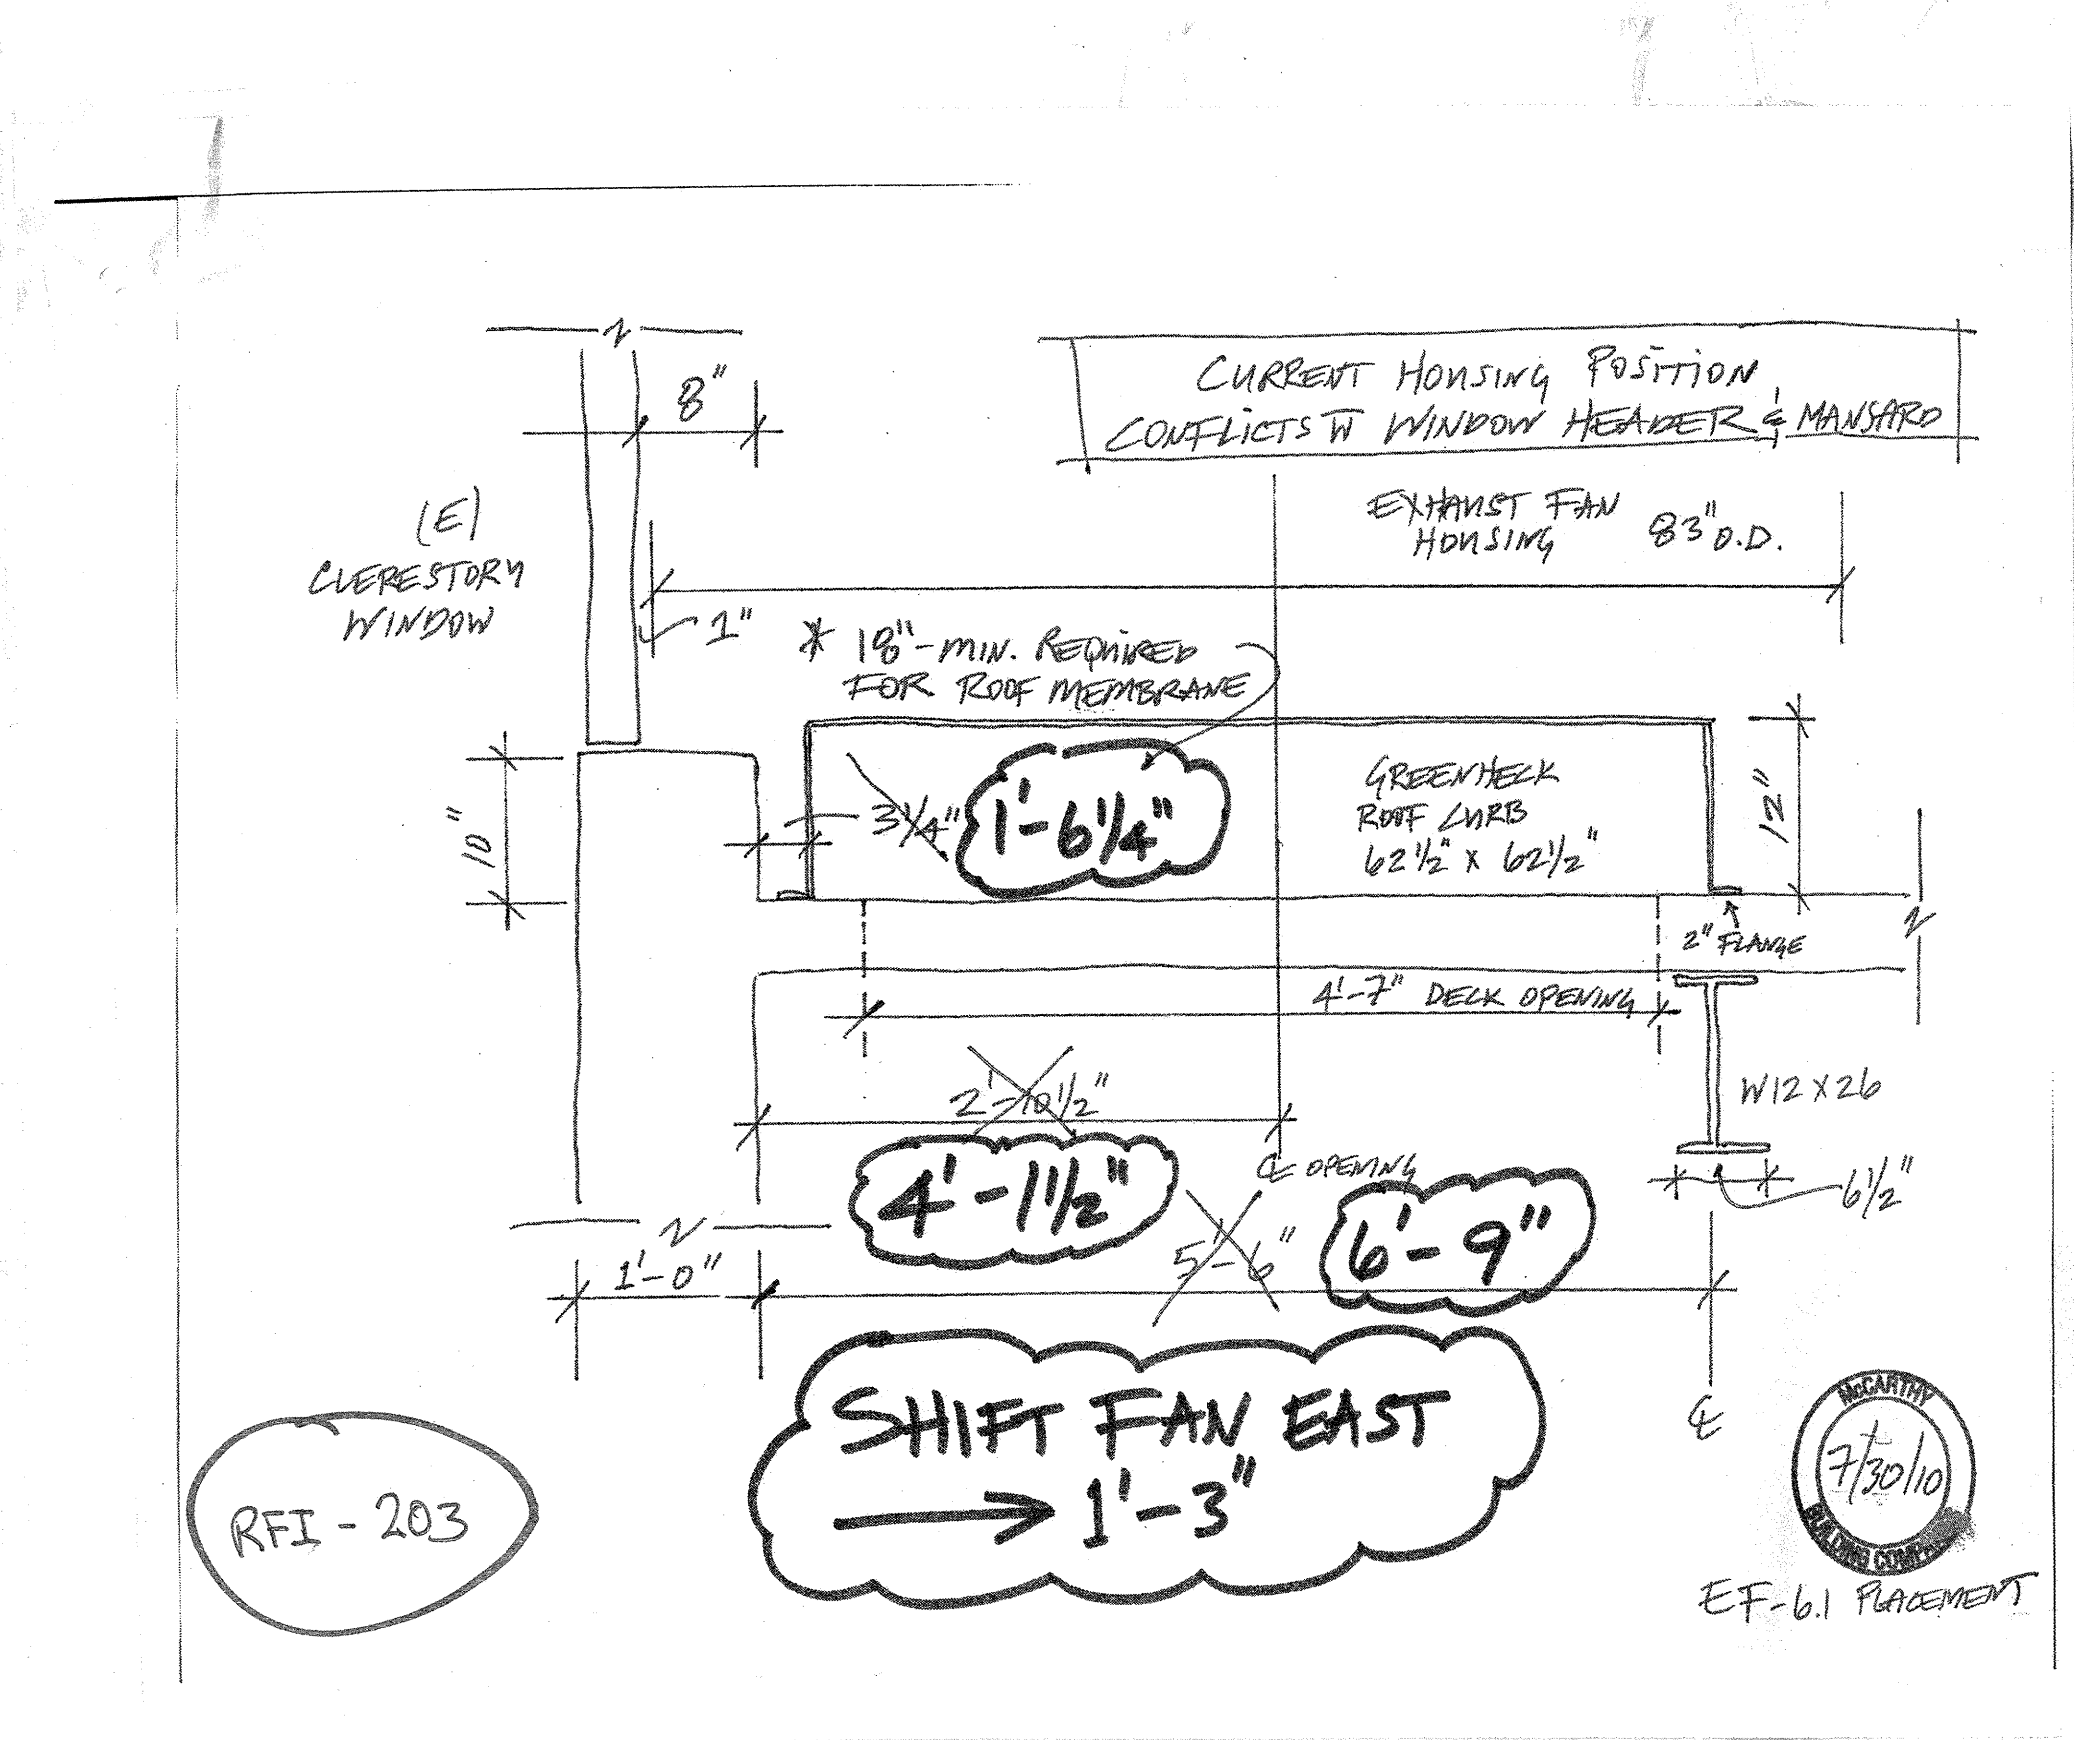 8"
CURRENT HOUSING POSITION
CONFLICTS W̄ WINDOW HEADER & MANSARD
(E)
CLERESTORY
WINDOW
EXHAUST FAN
HOUSING
83" O.D.
1"
* 18"-MIN. REQUIRED
FOR ROOF MEMBRANE
10"
3 1/4"
1'-6 1/4"
GREENHECK
ROOF CURB
62 1/2" x 62 1/2"
12"
2" FLANGE
4'-7" DECK OPENING
2'-10 1/2"
W12X26
4'-1 1/2"
℄ OPENING
6 1/2"
1'-0"
5'-6"
6'-9"
SHIFT FAN EAST
→ 1'-3"
℄
RFI - 203
McCARTHY
7/30/10
BUILDING
EF-6.1 PLACEMENT